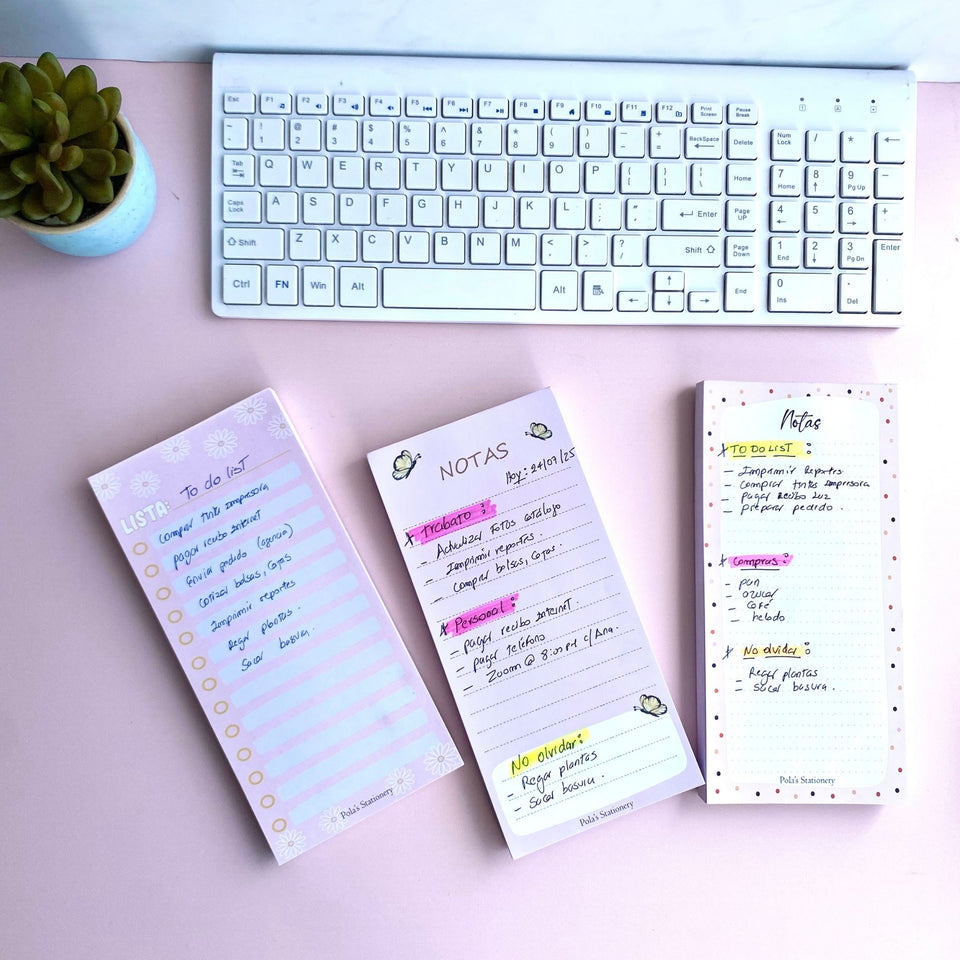 Esc F1 F2 F3 F4 F5 F6 F7 F8 F9 F10 F11 F12 Print Screen Pause Break
~ ! @ # $ % ^ & * ( ) — + BackSpace Delete Num Lock / * ←
1 2 3 4 5 6 7 8 9 0
Tab Q W E R T Y U I O P { } | Home 7 8 9 –
[ ] \ Home ↑ Pg Up
Caps Lock A S D F G H J K L : " Enter Page UP 4 5 6 +
; ← →
Shift Z X C V B N M < > ? Shift Page Down 1 2 3 Enter
, . / End ↓ Pg Dn
Ctrl FN Win Alt Alt ← ↑ ↓ → End 0 .
Ins Del
LISTA: To do list
Comprar tinta Impresora
pagar recibo Internet
Enviar pedido (agencia)
Cotizar bolsas, cajas
Imprimir reportes
Regar plantas.
Sacar basura.
Pola's Stationery
NOTAS
Hoy: 24/07/25
Trabajo:
– Actualizar Fotos catálogo
– Imprimir reportes
– Comprar bolsas, cajas.
Personal:
– Pagar recibo Internet.
– pagar teléfono
– Zoom @ 8:00 PM c/Ana.
No olvidar:
– Regar plantas
– Sacar basura.
Pola's Stationery
Notas
TO DO LIST:
– Imprimir Reportes
– Comprar tinta Impresora
– Pagar Recibo Luz
– Preparar pedido.
Compras:
– pan
– azucar
– Café
– helado
No olvidar:
– Regar plantas
– Sacar basura.
Pola's Stationery